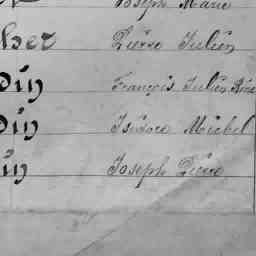 Joseph Marie
her Pierre Julien
din François Julien René
din Isidore Michel
in Joseph Pierre